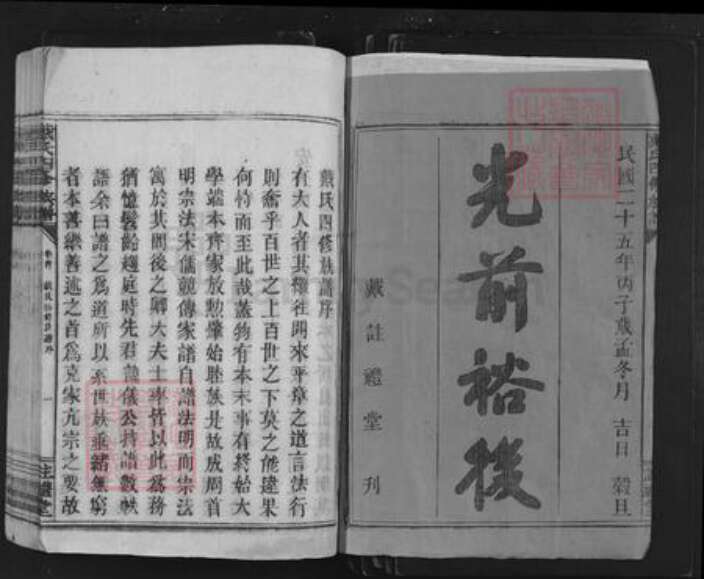 民國二十五年丙子歲孟冬月 吉日 穀旦
光前裕後
戴註禮堂刊
戴氏四修族譜序
有大人者其繼往開來平章之道言法行
則喬乎百世之上百世之下莫之能違果
何恃而至此哉蓋物有本末事有終始大
學端本齊家放勲肇始睦族是故成周首
明宗法宋儒競傳家譜自譜法明而宗法
寓於其間後之卿大夫士率皆以此為務
猶憶髫齡趨庭時先君 儀公持譜數帙
語余曰譜之為道所以系世族垂緒無窮
者本善繼善述之者為克家亢宗之要故
戴氏四修族譜
註禮堂